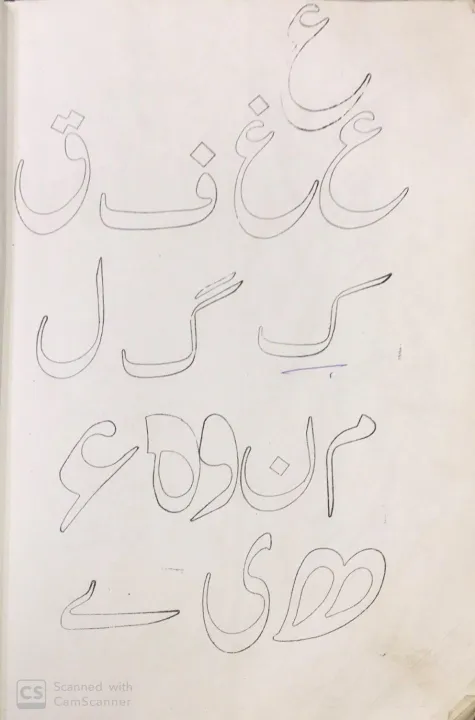 ع
ع غ ف ق
ک گ ل
م ن و ہ ء
ھ ی ے
CS Scanned with
CamScanner